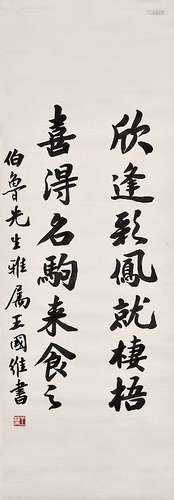 欣逢彩鳳就棲梧
喜得名駒来食之
伯魯先生雅属王國維書